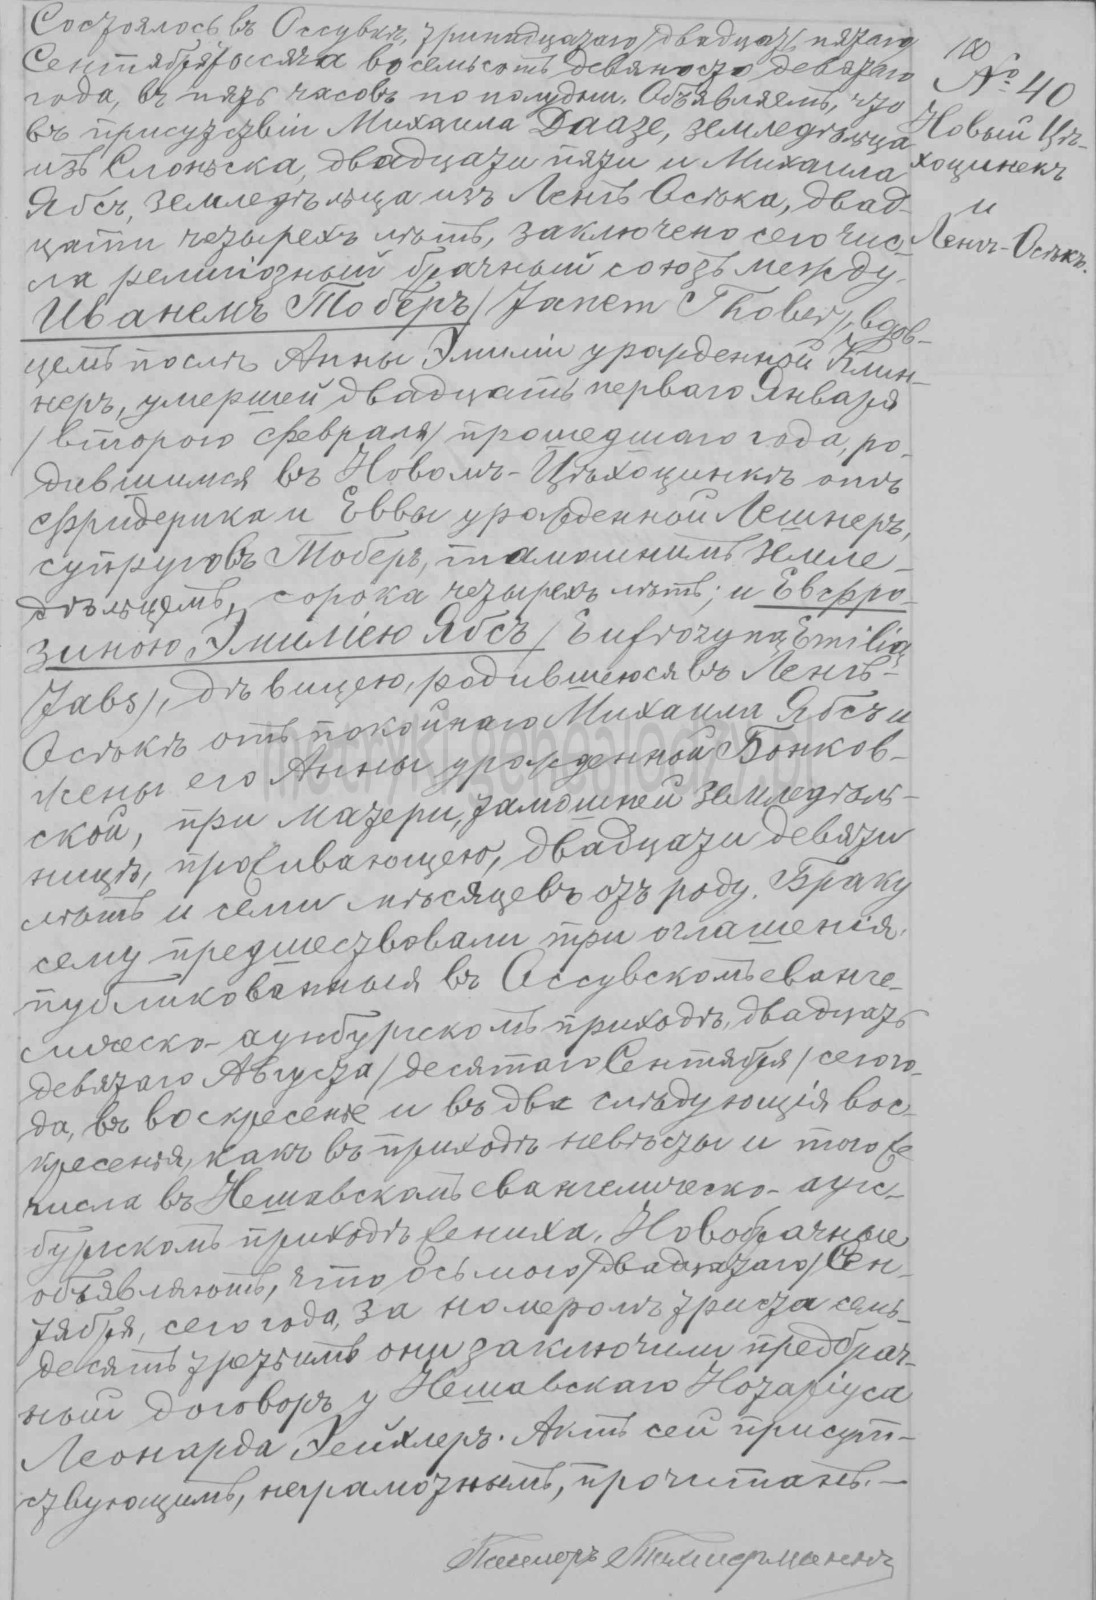 Состоялось въ Оссувкѣ, тринадцатаго /двадцать пятаго/
Сентября тысяча восемьсотъ девяносто девятаго
года, въ пять часовъ по полудни. Объявляемъ, что
въ присутствіи Михаила Даазе, земледѣльца
изъ Слоньска, двадцати пяти и Михаила
Ябсъ, земледѣльца изъ Ленгъ Осѣка, двад-
цати четырехъ лѣтъ, заключено сего чис-
ла религіозный брачный союзъ между
Иванемъ Тоберъ /Janem Thober/, вдов-
цемъ послѣ Анны Эмиліи урожденной Клин-
неръ, умершей двадцать перваго Января
/второго февраля/ прошедшаго года, ро-
дившимся въ Новомъ-Цѣхоцинкѣ отъ
Фридерика и Еввы урожденной Лешнеръ,
супруговъ Тоберъ, тамошнимъ земле-
дѣльцемъ, сорока четырехъ лѣтъ; и Евфро-
зиною Эмиліею Ябсъ /Eufrozyną Emilią
Jabs/, дѣвицею, родившеюся въ Ленгъ-
Осѣкѣ отъ покойнаго Михаила Ябсъ и
жены его Анны урожденной Бонков-
ской, при матери, тамошней земледѣль-
ницѣ, проживающею, двадцати девяти
лѣтъ и семи мѣсяцевъ отъ роду. Браку
сему предшествовали три оглашенія,
публикованныя въ Оссувскомъ еванге-
лическо-аугсбургскомъ приходѣ, двадцать
девятаго Августа /десятаго Сентября/ сего го-
да, въ воскресенье и въ два слѣдующія вос-
кресенія, какъ въ приходѣ невѣсты и того же
числа въ Нешавскомъ евангелическо-аугс-
бургскомъ приходѣ жениха. Новобрачные
объявляютъ, что осьмого /двадцатаго/ Сен-
тября, сего года, за номеромъ триста семь-
десятъ третьимъ они заключили предбрач-
ный договоръ у Нешавскаго Нотаріуса
Леонарда Рейхлеръ. Актъ сей присут-
ствующимъ, неграмотнымъ, прочитанъ.—
Пасторъ
№ 40
Новый Цѣ-
хоцинекъ
и
Ленгъ-Осѣкъ.
metryki.genealodzy.pl